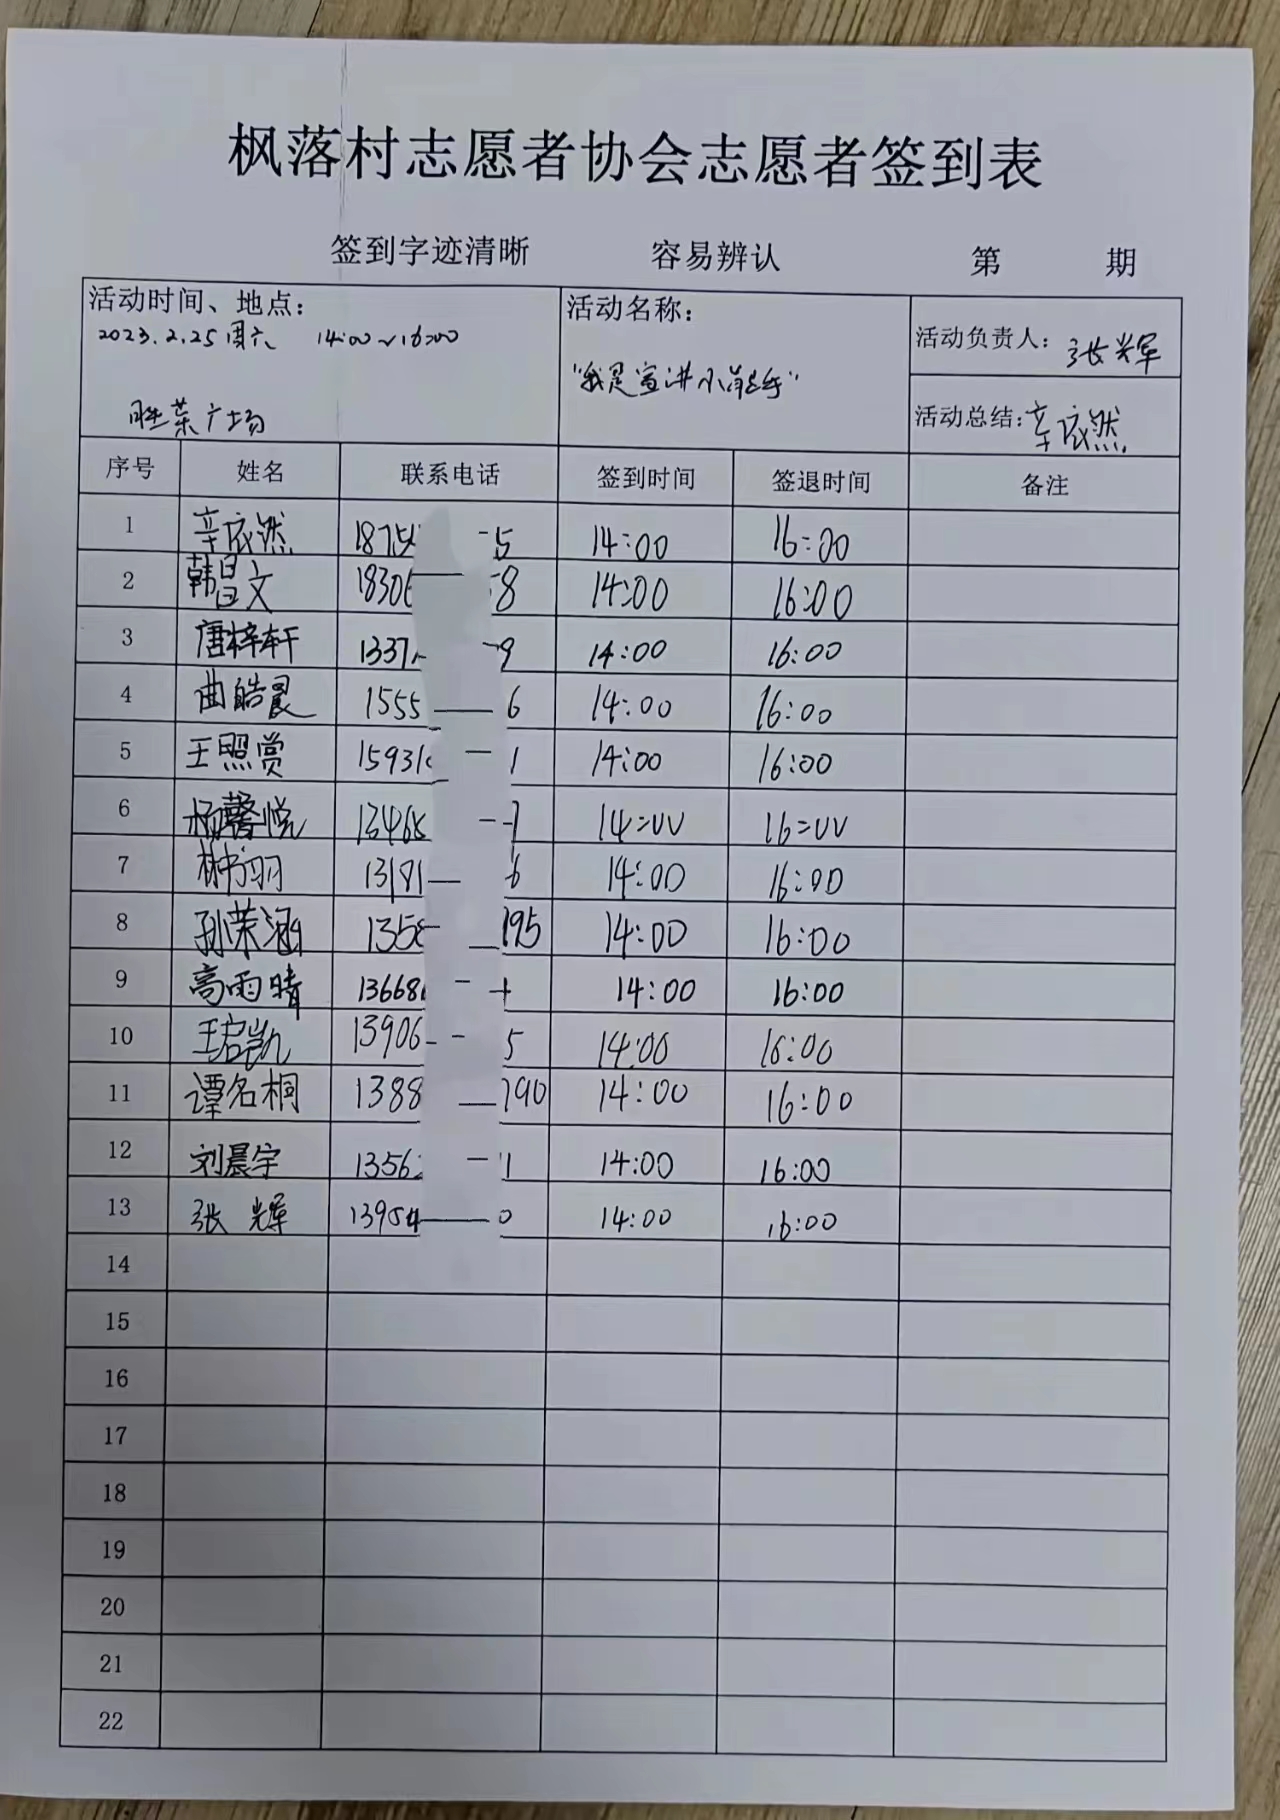 枫落村志愿者协会志愿者签到表
签到字迹清晰 容易辨认 第 期
活动时间、地点： 活动名称： 活动负责人： 张辉
2023.2.25 周六 14:00~16:00
"我是宣讲小能手"
胜荣广场 活动总结： 辛依然
序号 姓名 联系电话 签到时间 签退时间 备注
1 辛依然 1875 5 14:00 16:00
2 韩昌文 1830 8 14:00 16:00
3 唐梓轩 1337 9 14:00 16:00
4 曲皓晨 1555 6 14:00 16:00
5 王照赏 15931 1 14:00 16:00
6 杨馨悦 13468 14:00 16:00
7 林书羽 13181 6 14:00 16:00
8 孙荣涵 1358 195 14:00 16:00
9 高雨晴 13668 14:00 16:00
10 王君凯 13906 5 14:00 16:00
11 谭名桐 1388 790 14:00 16:00
12 刘晨宇 1356 1 14:00 16:00
13 张辉 13954 0 14:00 16:00
14
15
16
17
18
19
20
21
22